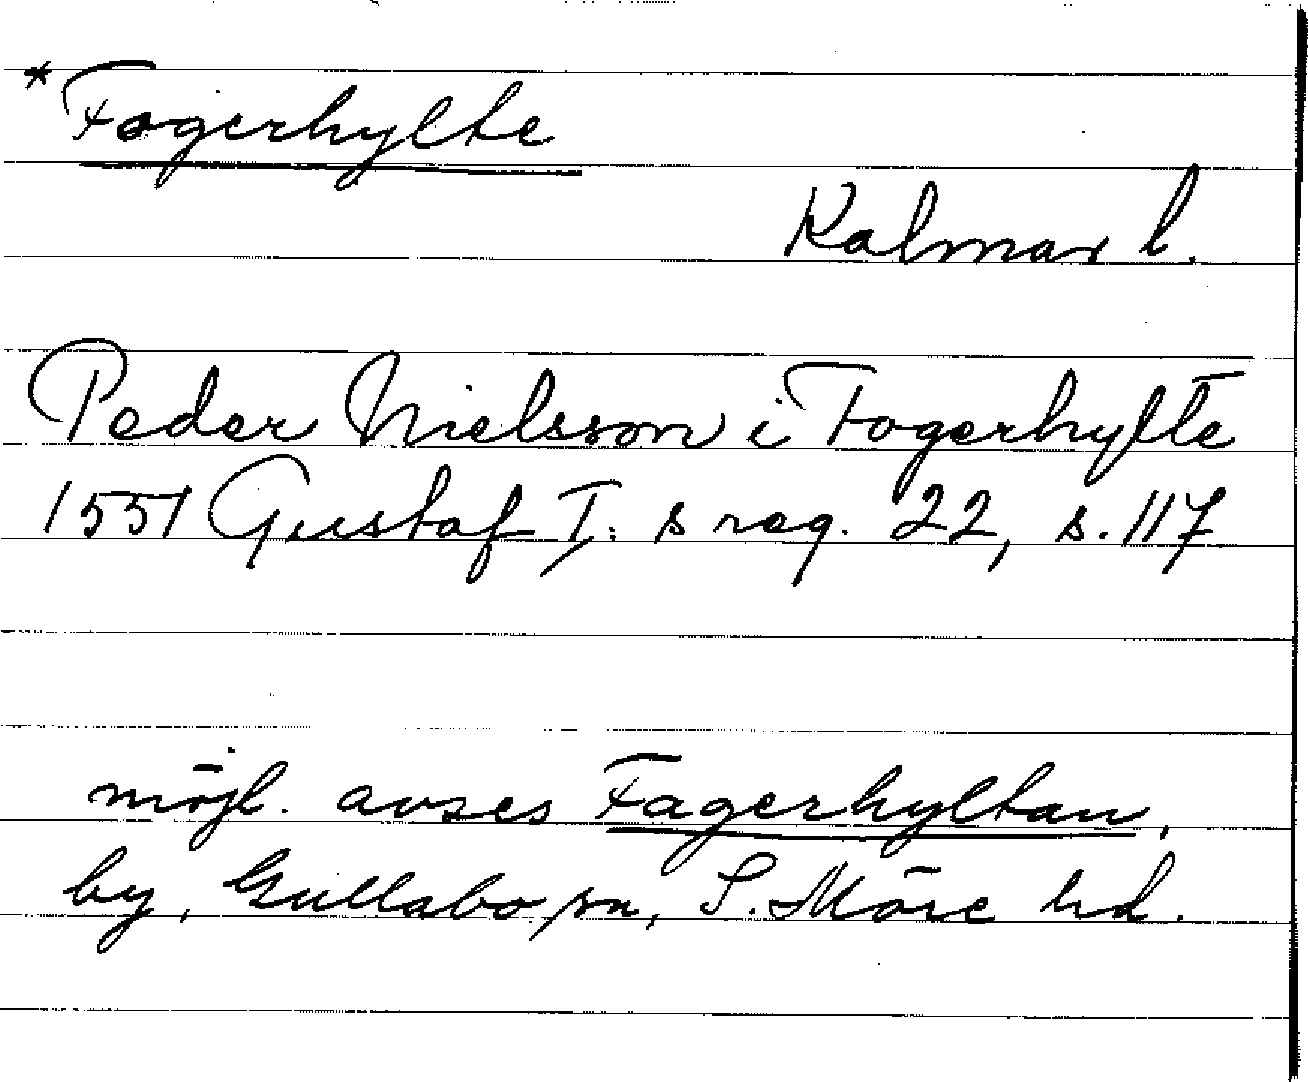 * Fogerhylte
Kalmar l.
Peder Nielsson i Fogerhylte
1551 Gustaf I: s reg. 22, s. 117
möjl. avses Fagerhyltan,
by, Gullabo sn, S. Möre hd.